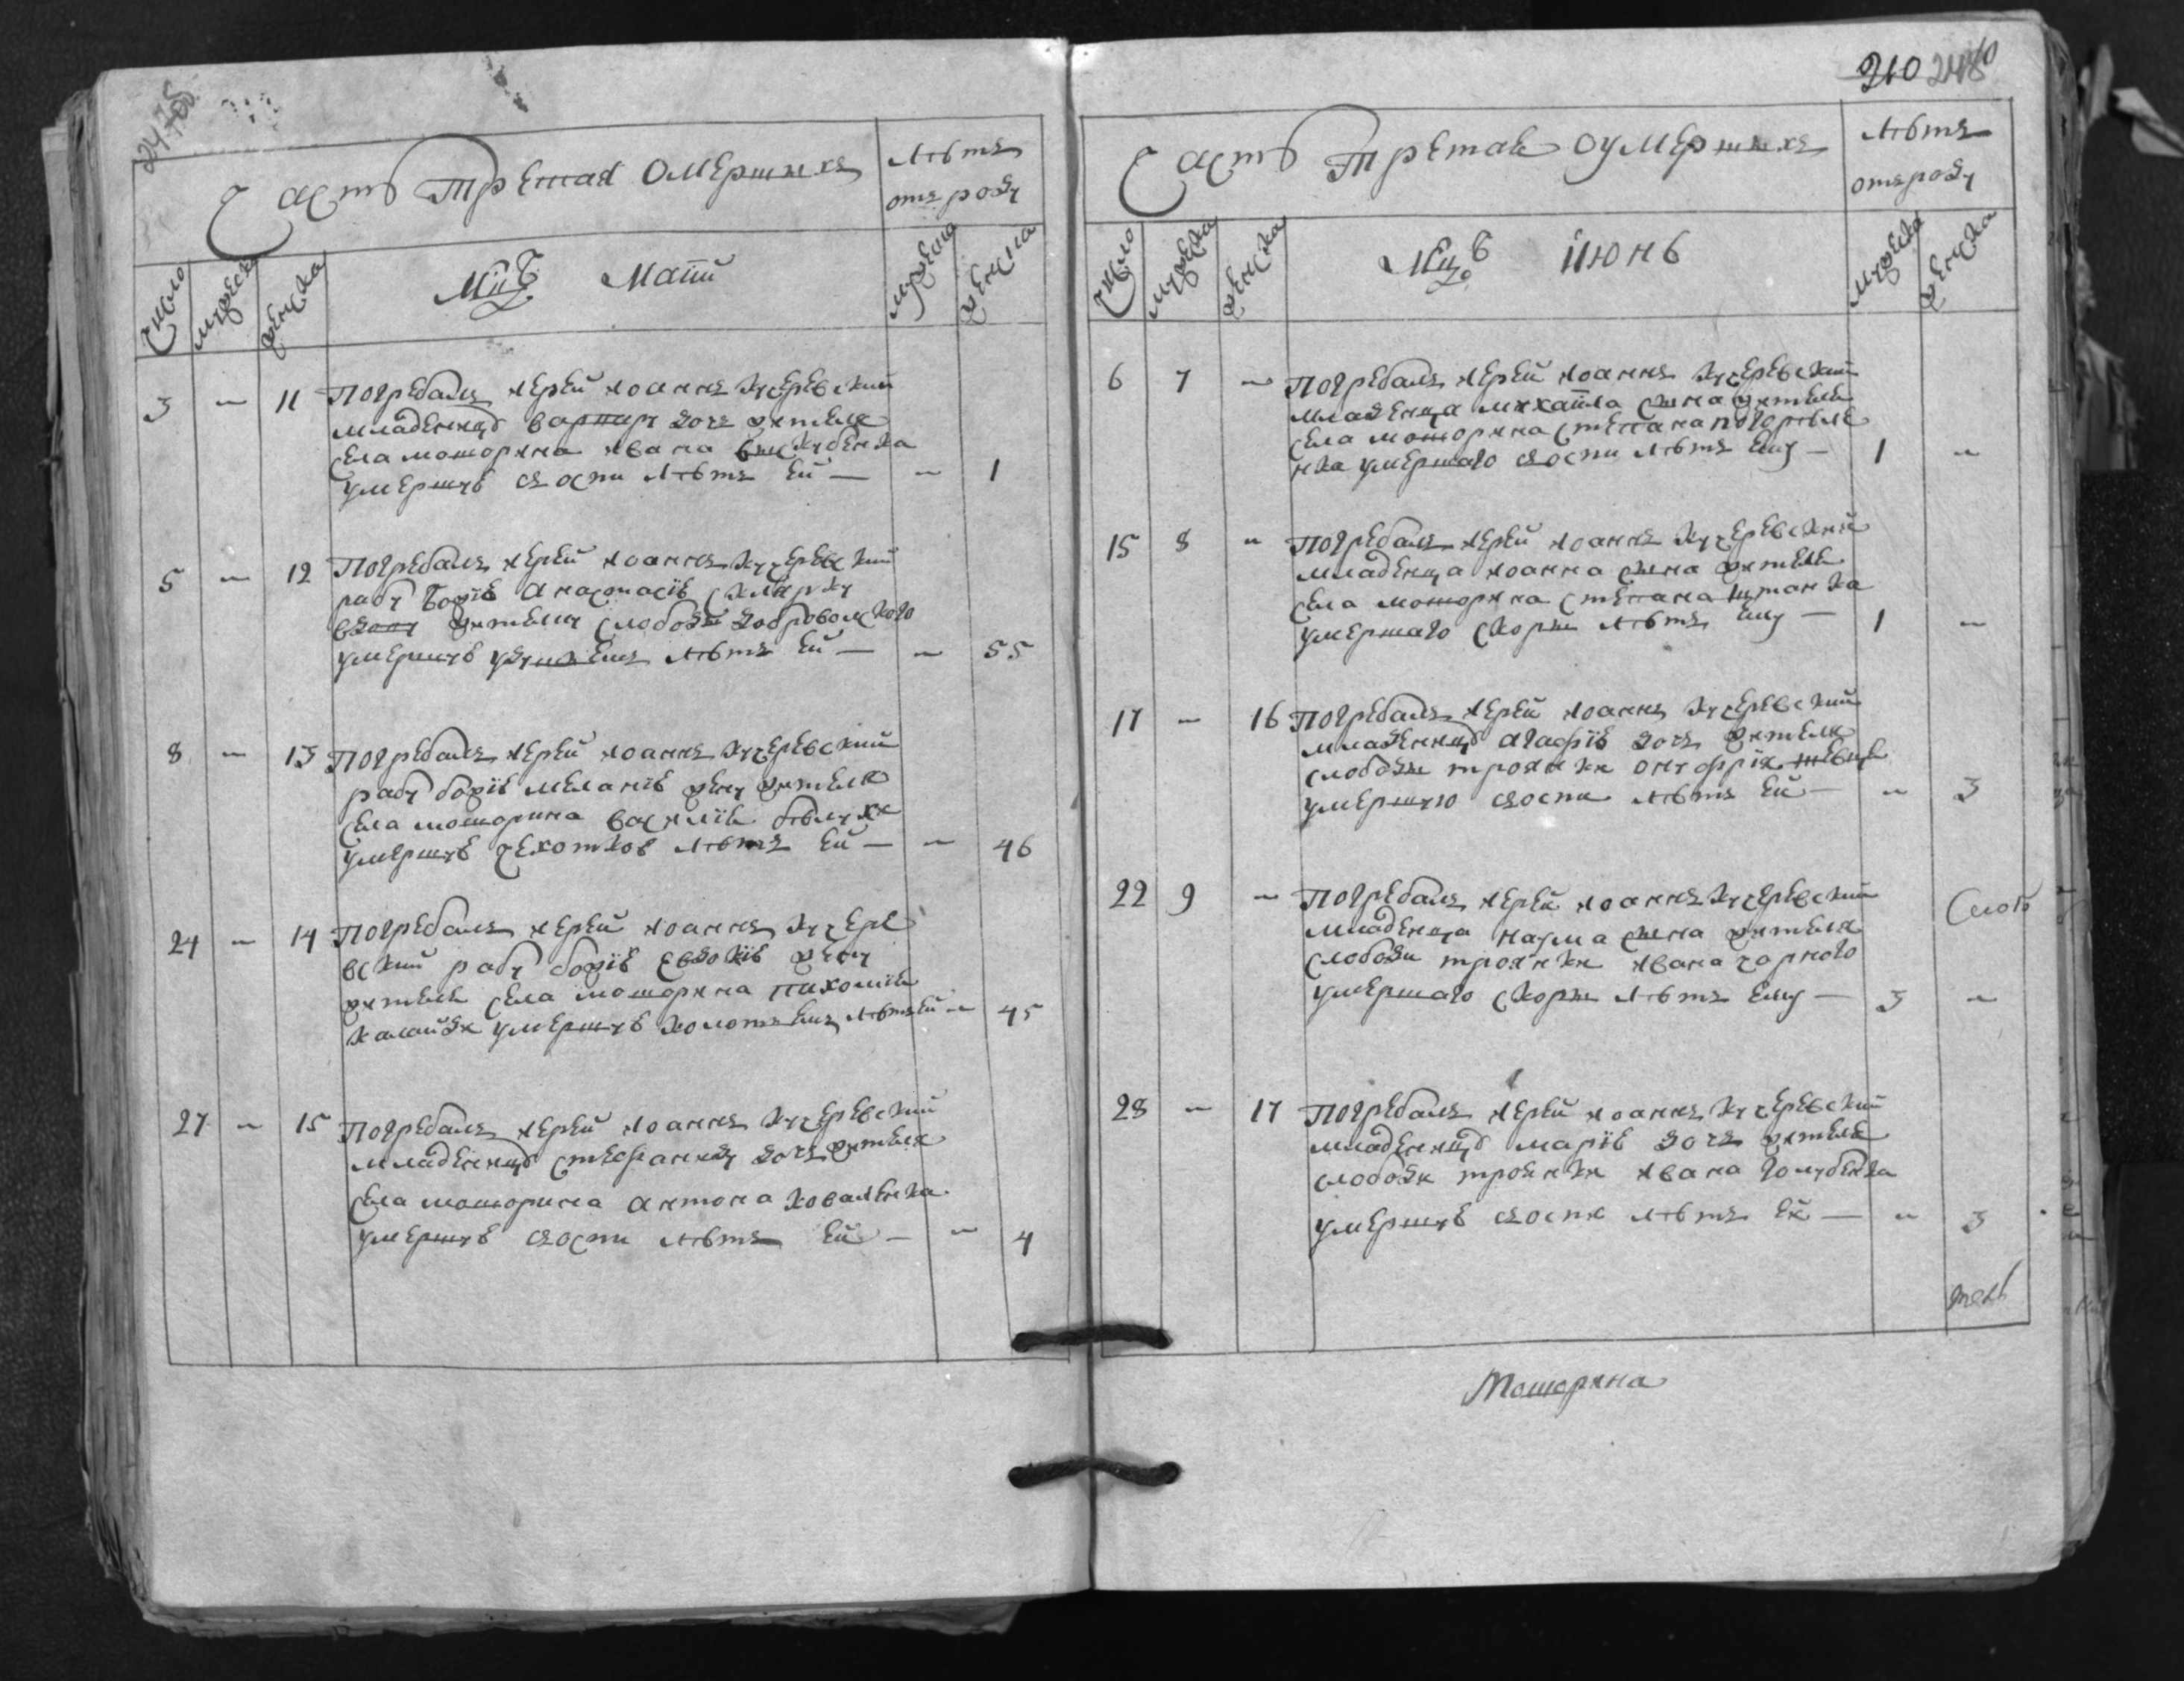 Часть Третая Омершихъ
Лѣтъ
отъ роду
Число
мужеска
женска
Мцъ Маий
мужеска
женска
3 – 11 Погребалъ иерей иоаннъ кучеревский
младеницю варвару дочь жителя
села мошорина ивана
умершую съ оспи лѣтъ ей — – 1
5 – 12 Погребалъ иерей иоаннъ кучеревский
рабу Божію Анастасію
вдову жителку слободы добровольского
умершую удушіемъ лѣтъ ей — – 55
8 – 13 Погребалъ иерей иоаннъ кучеревский
рабу божію меланію жену жителя
села мошорина василія
умершую чехоткою лѣтъ ей — – 46
24 – 14 Погребалъ иерей иоаннъ кучере
вский рабу божію евдокію жену
жителя села мошорина пахомія
умершую лѣтъ ей – 45
27 – 15 Погребалъ иерей иоаннъ кучеревский
младеницю стефаниду дочь жителя
села мошорина антона коваленка
умершую съ оспи лѣтъ ей — – 4
210
Часть Третая оумершихъ
Лѣтъ
отъ роду
Число
мужеска
женска
Мцъ июнь
мужеска
женска
6 7 – Погребалъ иерей иоаннъ кучеревский
младенца михаила сына жителя
села мошорина степана погорѣле
нка умершаго съ оспи лѣтъ ему — 1 –
15 8 – Погребалъ иерей иоаннъ кучеревский
младенца иоанна сына жителя
села мошорина степана штанка
умершаго с коры лѣтъ ему — 1 –
17 – 16 Погребалъ иерей иоаннъ кучеревский
младеницю агафію дочь жителя
слободы троянки онуфрія
умершую съ оспи лѣтъ ей — – 3
22 9 – Погребалъ иерей иоаннъ кучеревский
младенца наума сына жителя
слободи троянки ивана чорного
умершаго с коры лѣтъ ему — 3 –
28 – 17 Погребалъ иерей иоаннъ кучеревский
младеницю марію дочь жителя
слободи троянки ивана голубенка
умершую съ оспи лѣтъ ей — – 3
Мошорина